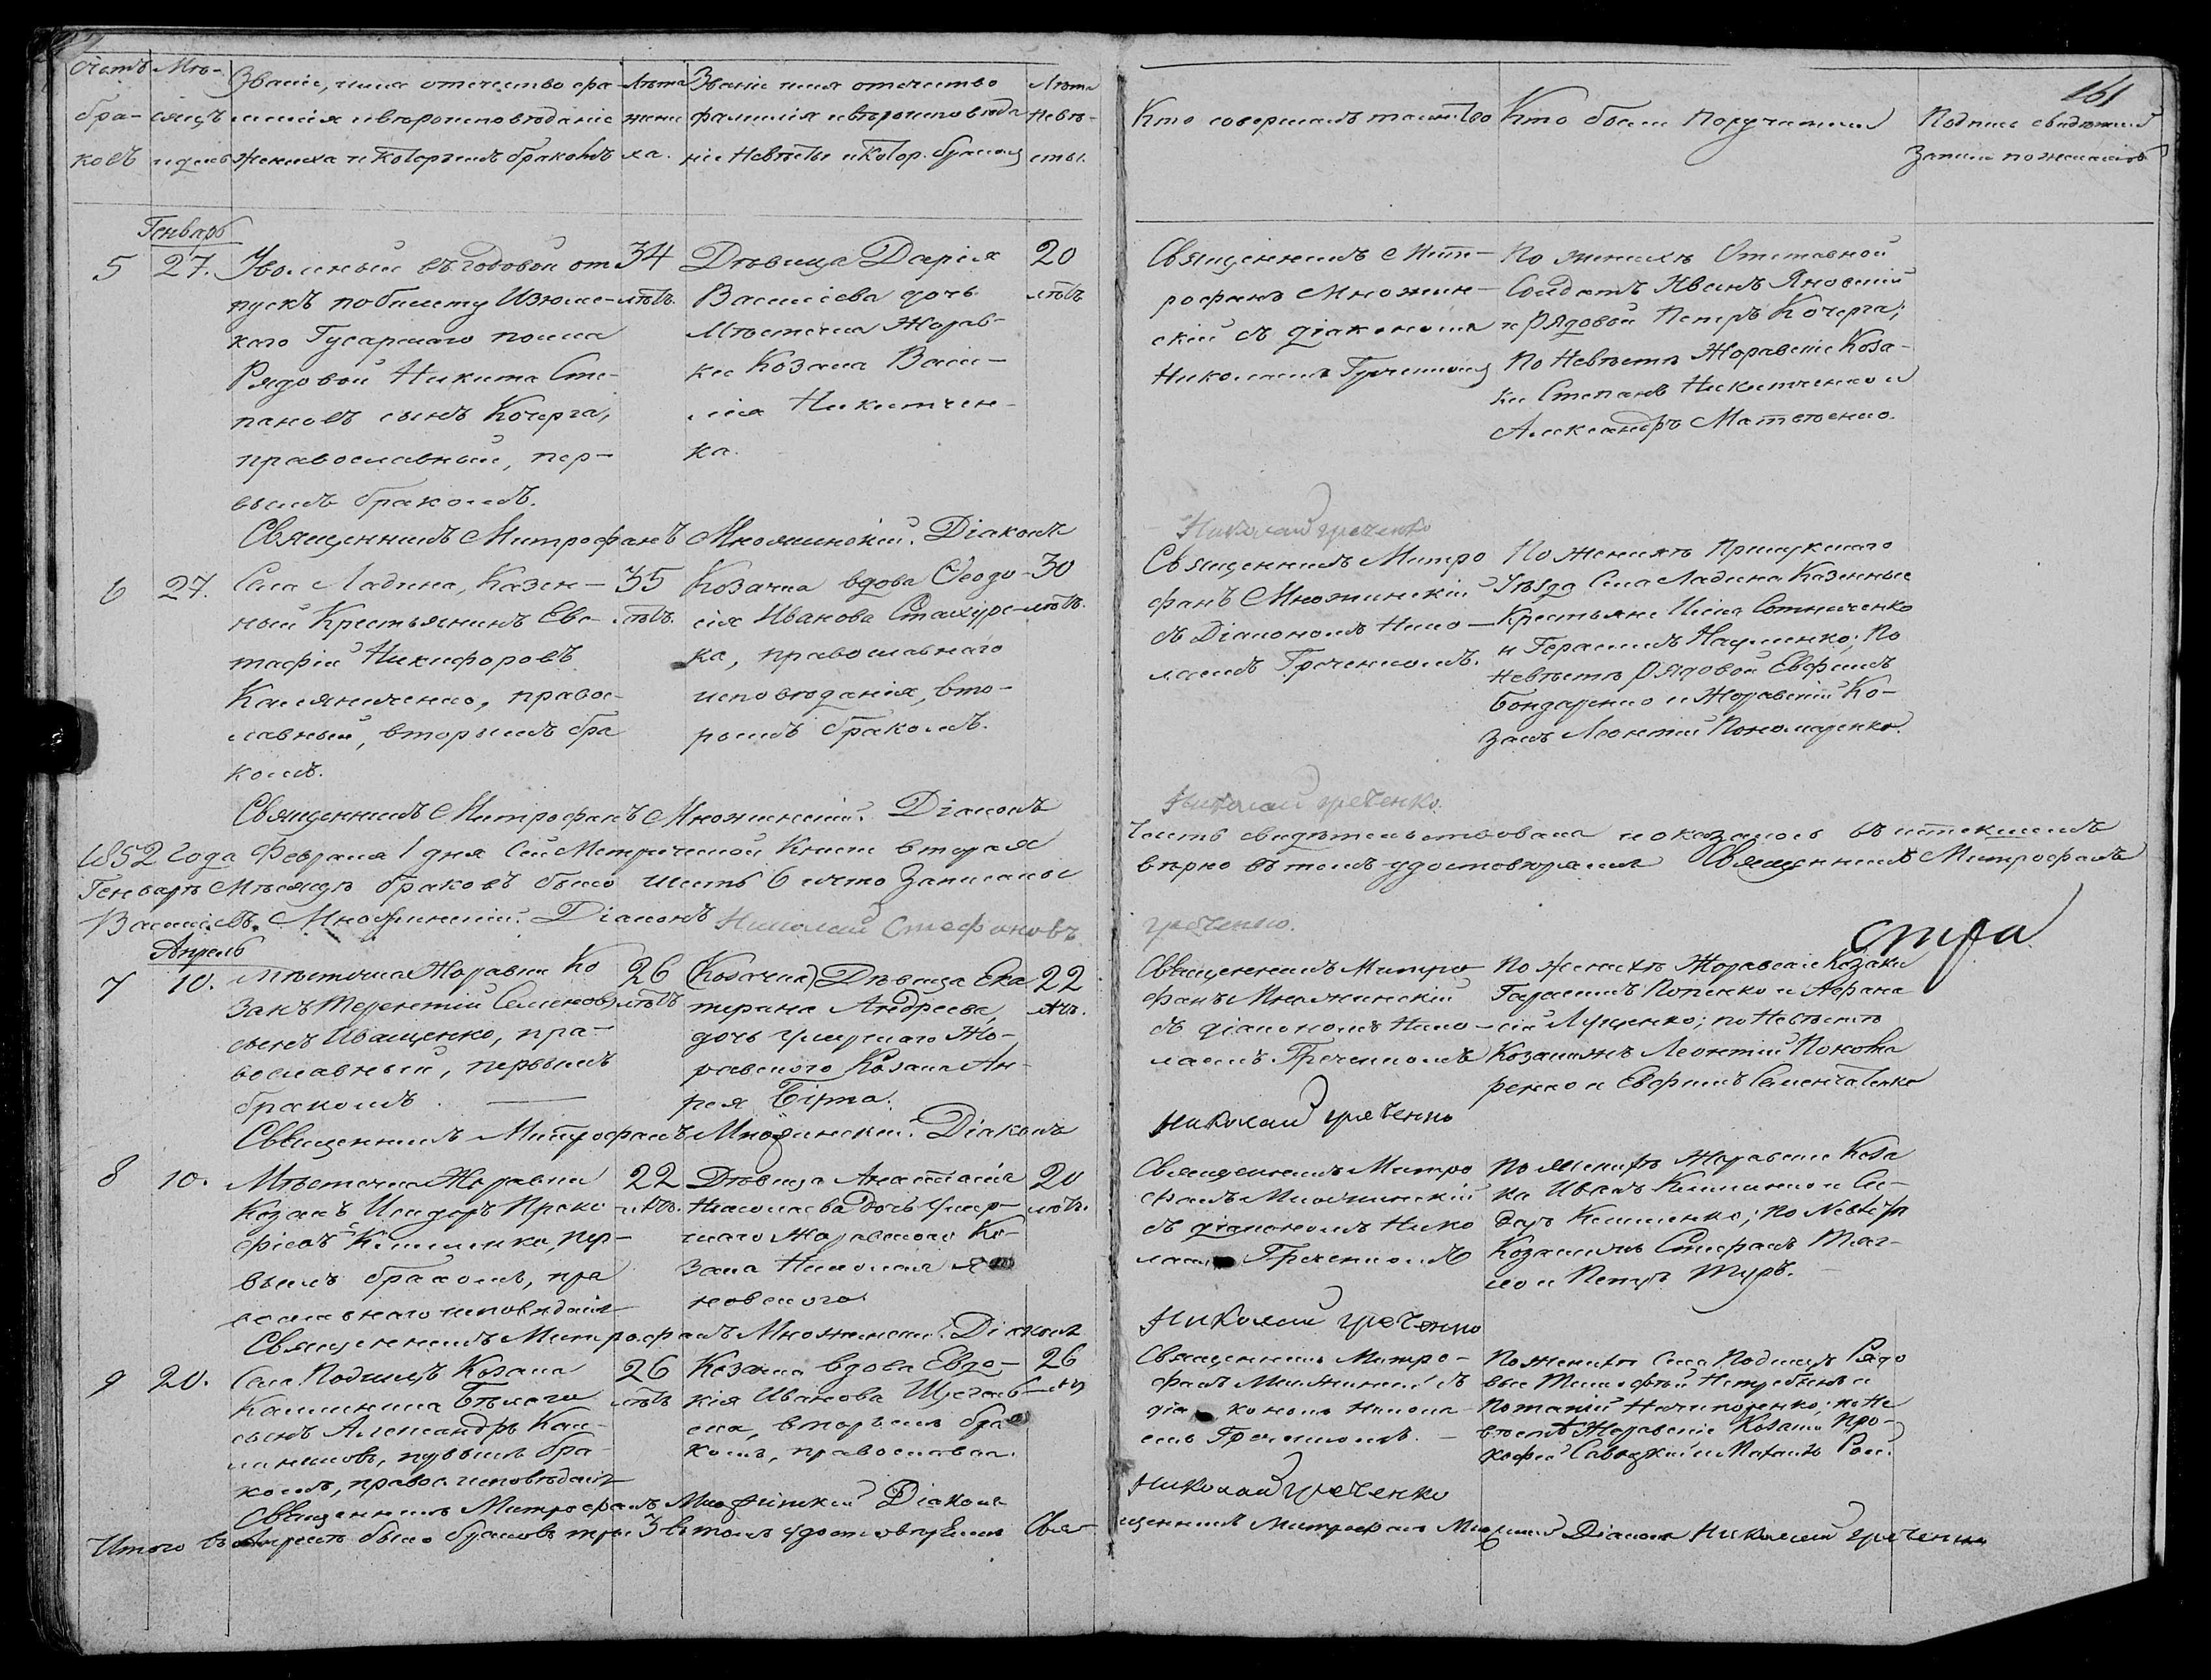 161
Счетъ бра-ковъ
Мѣ-сяцъ и день
Званіе, имя отечество фа-
милія и вѣроисповѣданіе
жениха и которымъ бракомъ
Лѣта жени-ха.
Званіе имя отечество
фамилія и вѣроисповѣда-
ніе Невѣсты и котор. бракомъ
Лѣта Невѣ-сты.
Кто совершалъ таинство
Кто были Поручители
Подпись свидѣтелей
записи по желанію
Генварь
5
27.
Уволенный въ годовой от-
пускъ по билету Изюмс-
каго Гусарскаго полка
Рядовой Никита Сте-
пановъ сынъ Кочерга,
православный, пер-
вымъ бракомъ.
34
лѣтъ.
Дѣвица Дарія
Василіева дочь
Мѣстечка Жорав-
ки Козака Васи-
лія Никитчен-
ка.
20
лѣтъ
Священникъ Мит-
рофанъ Множин-
скій съ діакономъ
Николаемъ Гречинкомъ
По женихѣ Отставной
Солдатъ Иванъ Яновскій
и Рядовой Петръ Кочерга;
По Невѣстѣ Жоравскіе Коза-
ки Степанъ Никитченко и
Александръ Матвѣенко.
Священникъ Митрофанъ Множинскій. Діаконъ
Николай греченко
6
27.
Села Ладина, Казен-
ный Крестьянинъ Евс-
тафій Никифоровъ
Калениченко, правос-
лавный, вторымъ бра
комъ.
35
лѣтъ.
Козачка вдова Феодо-
сія Иванова Стахурс-
ка, православнаго
исповѣданія, вто-
рымъ бракомъ.
30
лѣтъ.
Священникъ Митро
фанъ Множинскій
съ Діакономъ Нико-
лаемъ Греченкомъ.
По женихѣ Прилукскаго
Уѣзда Села Ладина Казенные
Крестьяне Сотниченко
и Герасимъ Науменко; По
невѣстѣ Рядовой Евфимъ
Бондаренко и Жоравскій Ко-
закъ Леонтій Пономаренко.
Священникъ Митрофанъ Множинскій. Діаконъ
Николай греченко.
1852 года Февраля 1 дня Сей Метрической Книги вторая
часть свидѣтельствована и оказалось въ истекшемъ
Генварѣ Мѣсяцѣ браковъ было шесть 6 что записаны
вѣрно въ томъ удостовѣряемъ Священникъ Митрофанъ
Василіевъ Множинскій. Діаконъ Николай Стефановъ
греченко.
Апрель
7
10.
Мѣстечка Жоравки Ко
закъ Терентій Семеновъ
сынъ Иващенко, пра-
вославный, первымъ
бракомъ.
26
лѣтъ
(Козачка) Дѣвица Ека
терина Андреева,
дочь умершаго Жо-
равского Козака Ан-
рея
22
лѣт.
Священникъ Митро
фанъ Множинскій
съ діакономъ Нико-
лаемъ Греченкомъ
По женихѣ Жоравскіе Козаки
Герасимъ Попенко и Афана
сій Луценко; по Невѣстѣ
Козакижъ Леонтій Понома
ренко и Евфимъ
Священникъ Митрофанъ Множинскій. Діаконъ
николай греченко
8
10.
Мѣстечка Жоравки
Козакъ Исидоръ Проко
фіевъ пер-
вымъ бракомъ, пра
вославнаго исповѣданія
22
лѣт.
Дѣвица Анастасія
Николаева дочь умер-
шаго Жоравского Ко-
зака Николая Я
новского
20
лѣтъ.
Священникъ Митро
фанъ Множинскій
съ діакономъ Нико
лаемъ Греченкомъ
По женихѣ Жоравскіе Коза
ки Иванъ и Си-
доръ по Невѣстѣ
Козакижъ Стефанъ
и Петръ
Священникъ Митрофанъ Множинскій. Діаконъ
николай греченко
9
20.
Села Подищъ Козака
Калиника
сынъ Александръ Кал-
иниковъ, первымъ бра-
комъ, правос. исповѣданія
26
лѣтъ
Козачка вдова Евдо-
кія Иванова
вторымъ бра
комъ, православная.
26
лѣт
Священникъ Митро-
фанъ Множинскій съ
діакономъ Никола-
емъ Греченкомъ.
По женихѣ Села Подищъ Рядо
вые Тимофей и
Потапій по Не
вѣстѣ Жоравскіе Козаки Про-
кофій и
Священникъ Митрофанъ Множинскій Діаконъ
николай греченко
Итого въ Апрелѣ было браковъ три 3 въ томъ удостовѣряемъ Свя-
щенникъ Митрофанъ Діаконъ Николай греченко